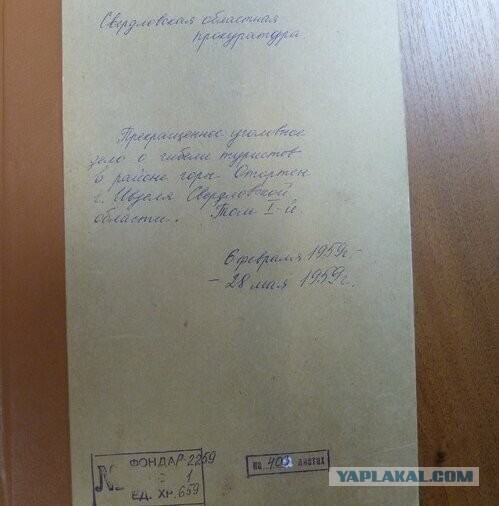 Свердловская областная
прокуратура
Прекращенное уголовное
дело о гибели туристов
в районе горы Отортен
г. Ивделя Свердловской
области. Том I-й
6 февраля 1959г. -
- 28 мая 1959г.
№ ФОНДАР-2259
1
ЕД. ХР. 659
на листах
YAPLAKAL.COM